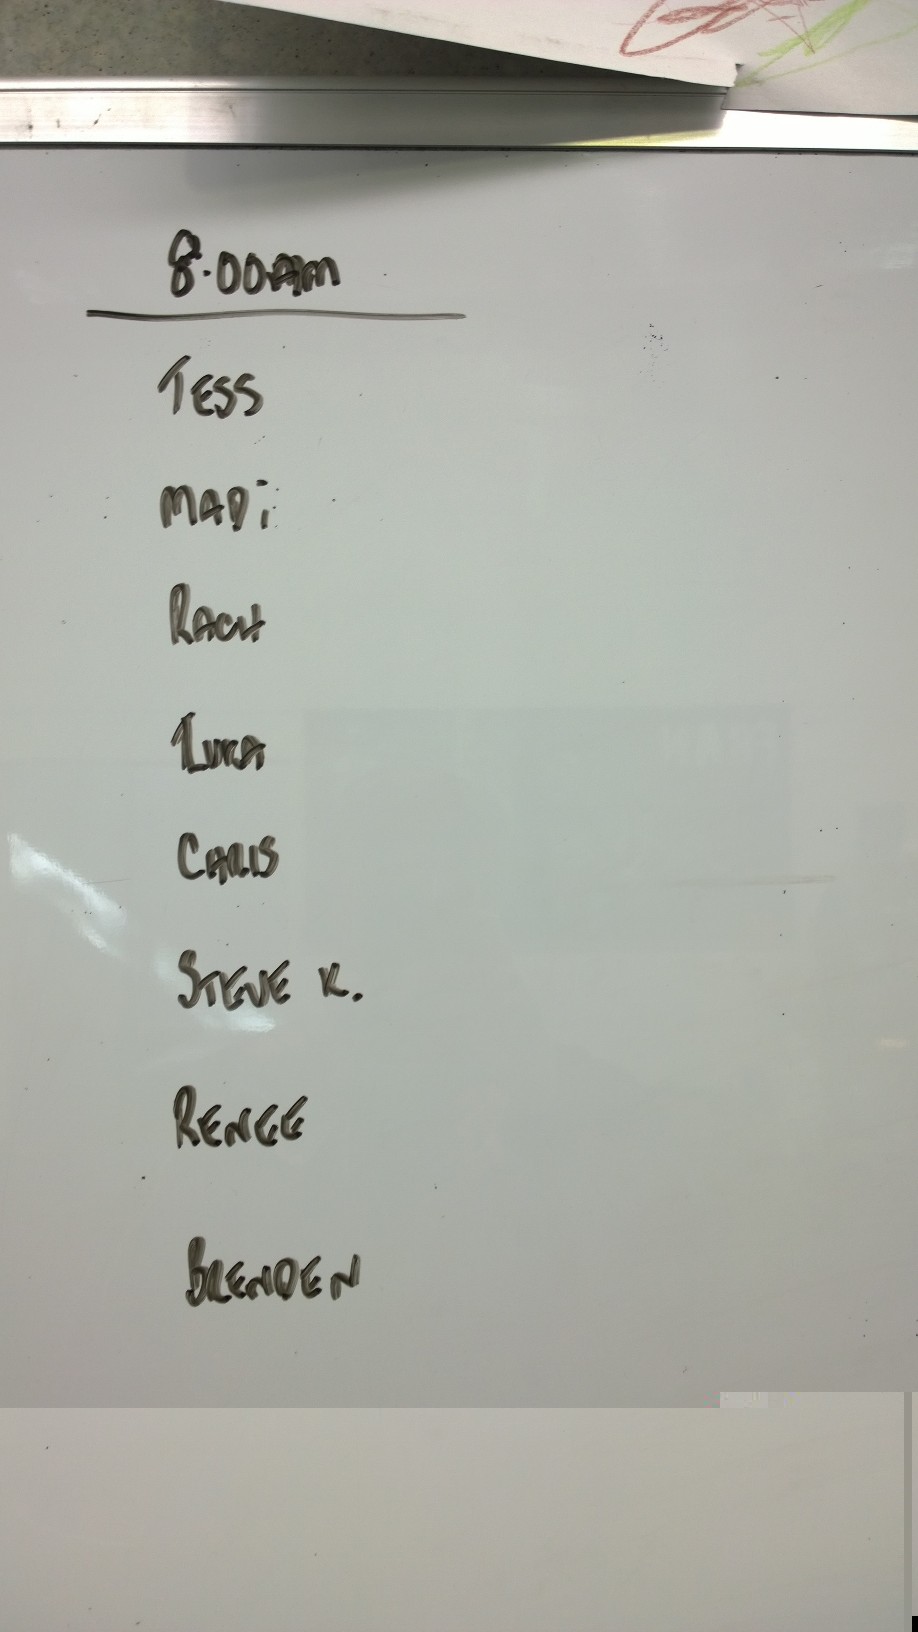 8.00AM
TESS
MADi
RACH
LUKA
CHRIS
STEVE K.
RENEE
BRENDEN